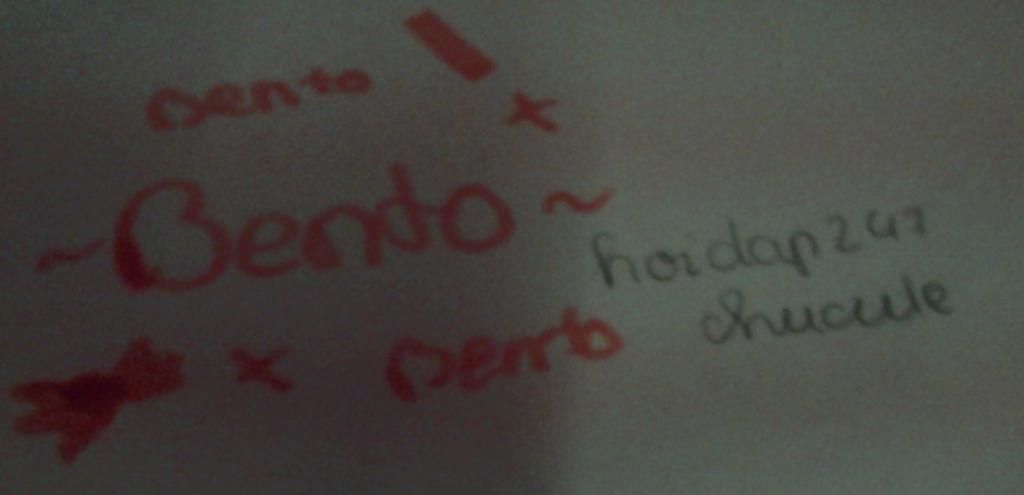 Bento
~Bento~
hoidap247
chucule
x Bento